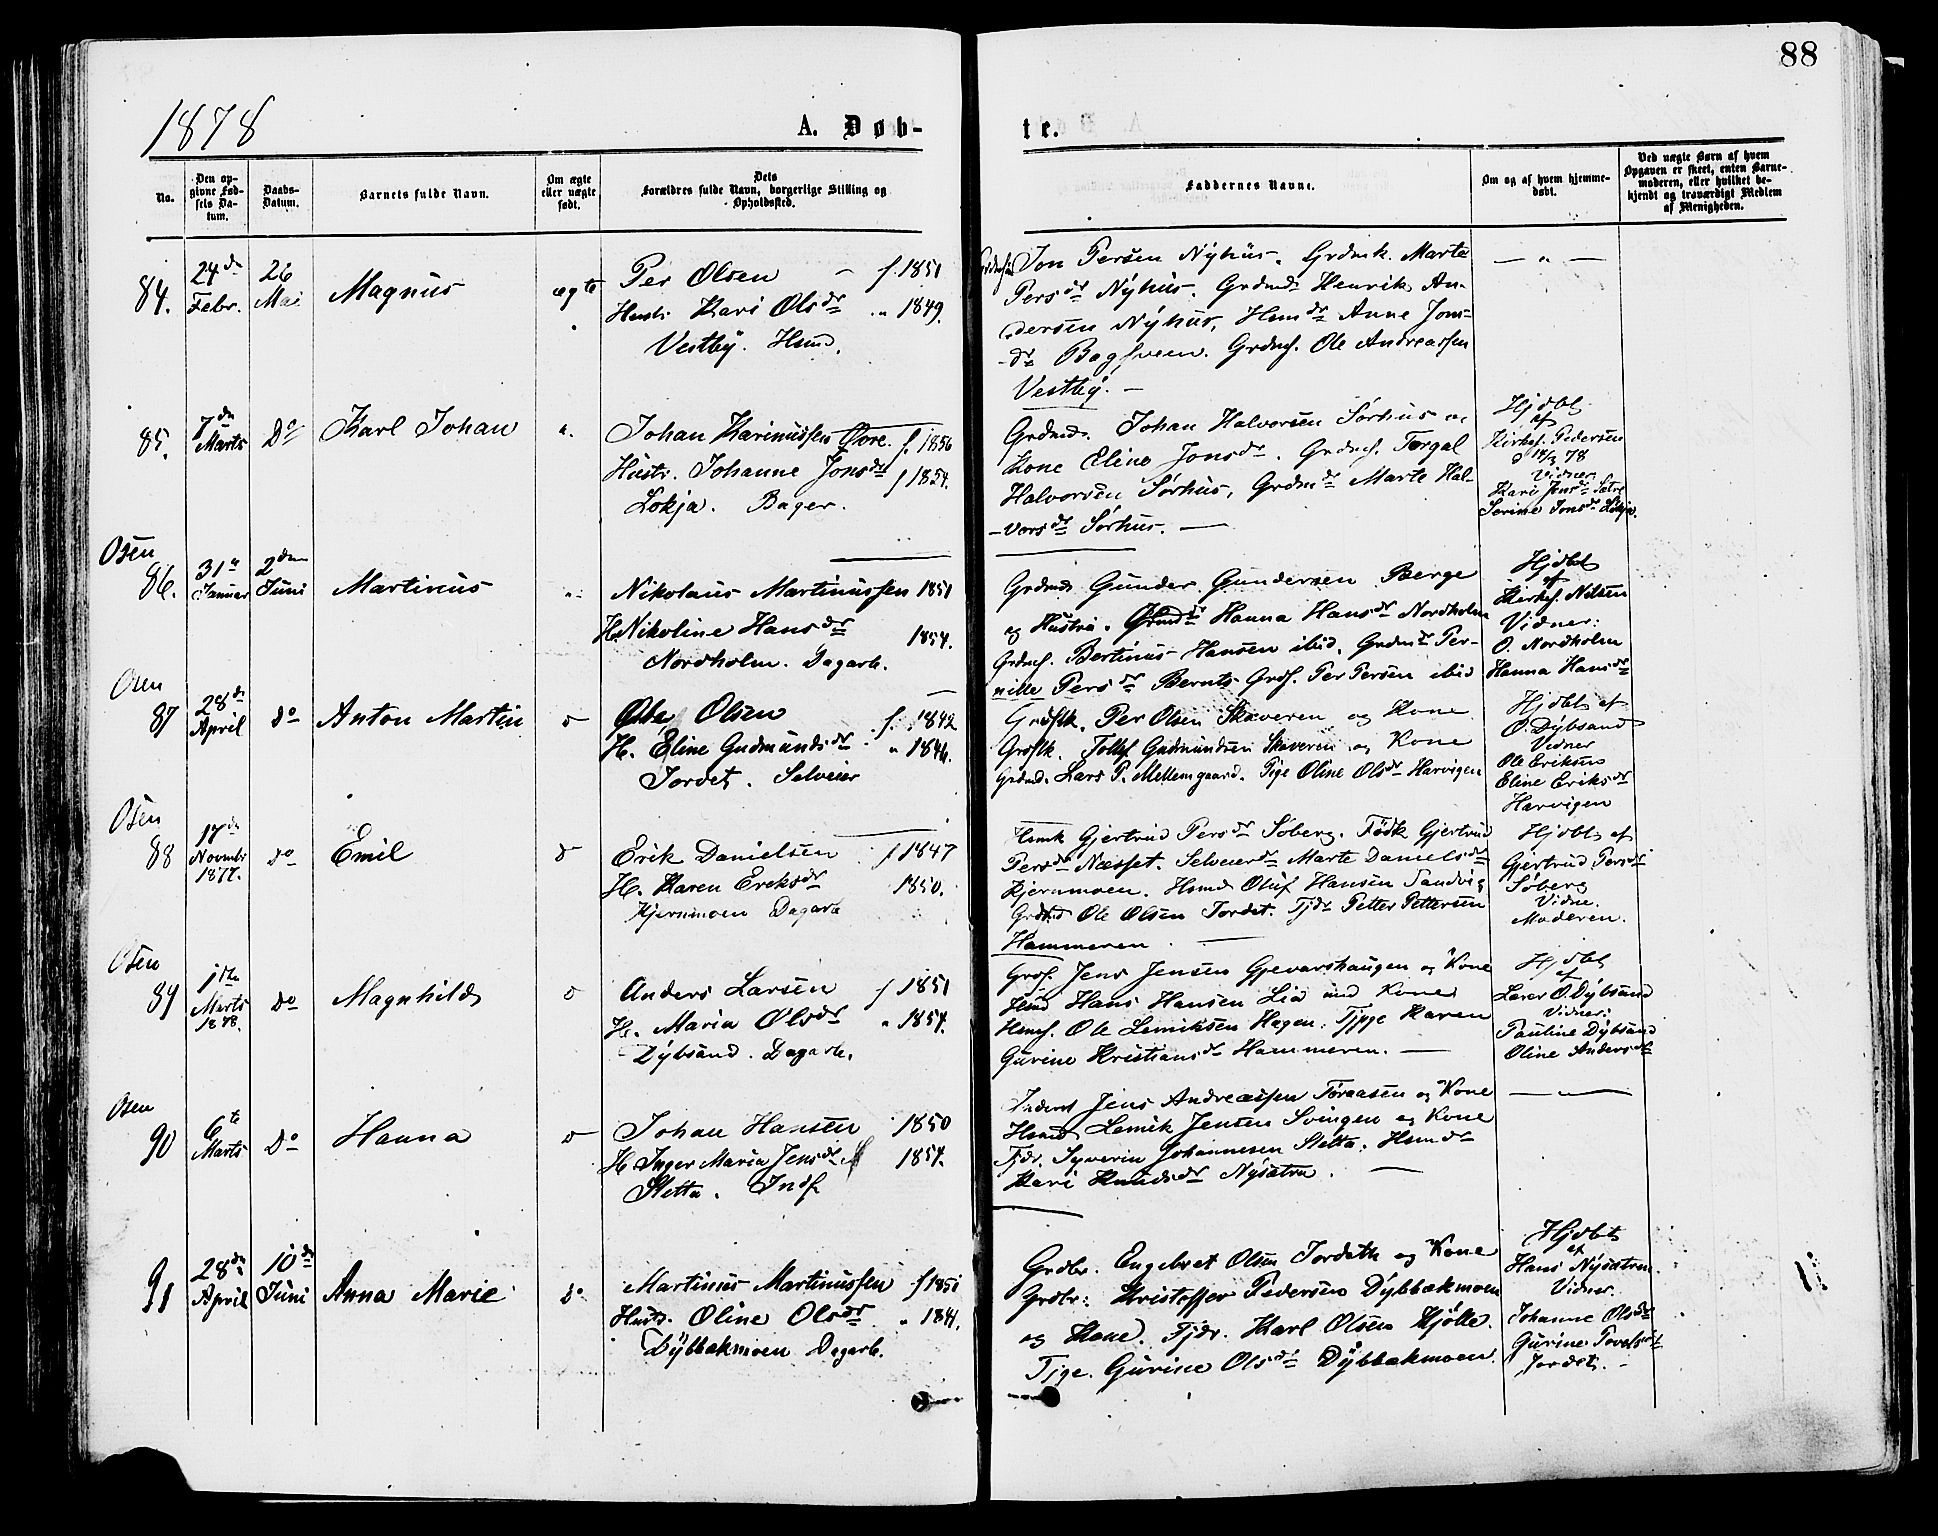 88
1878
A. Døb-
te.
No.
Den op-
givne Fød-
sels Da-
tum.
Daabs-
Datum.
Barnets fulde Navn.
Om ægte
eller uægte
født.
Dets
Forældres fulde Navn, borgerlige Stilling og
Opholdssted.
Faddernes Navne.
Om og af hvem hjemme-
døbt.
Ved uægte Børn af hvem
Opgaven er skeet, enten Barne-
moderen, eller hvilket be-
kjendt og troværdigt Medlem
af Menigheden.
84.
24de
Febr.
26
Mai
Magnus
ægte
Per Olsen f. 1851
Hustr. Kari Olsdr " 1849.
Vestby. Hsmd.
Jon Persen Nyhus. Grdmk. Marte
Persdr Nyhus. Grdmd. Henrik An-
dersen Nyhus, Hsmdr Anne Jons-
dr Bagsveen. Grdmf. Ole Andreassen
Vestby. —
— " —
85.
7de
Marts
Do
Karl Johan
"
Johan Karinussen Øvre. f. 1856
Hustr. Johanne Jonsdr f 1854.
Lokja. Bager.
Grdmd. Johan Halvorsen Sørhus og
Kone Eline Jonsdr. Grdmf. Torgal
Halvorsen Sørhus, Grdmdr Marte Hal-
vorsdr Sørhus. —
Hjdbt
af
Kirkes. Pedersen
Vidner
Kari Jonsdr Sætre
Serine Jonsdr Lokja.
Osen
86.
31te
Januar
2den
Juni
Martinus
"
Nikolaus Martinussen 1851
H. Nikoline Hansdr 1854.
Nordholm. Dagarb.
Grdmd. Gunder Gundersen Berge
og Hustru. Grdmdr Hanna Hansdr Nordholm
Grdmf. Bertinus Hansen ibid. Grdmdr Per-
nille Persdr Bernts. Grdf. Per Persen ibid
Hjdbt
af
Kirkes. Nilsen
Vidner:
O. Nordholm
Hanna Hansdr
Osen
87
28de
April
do
Anton Martin
do
Ole Olsen f. 1842
H. Eline Gudmundsdr " 1846.
Jordet. Selveier
Per Olsen Skaveren og Kone
Tollef Gudmundsen Skaveren og Kone
Grdmd. Lars P. Mellemgaard. Pige Oline Olsdr Harvigen
Hjdbt af
O. Dybsand
Vidner
Ole Eriksen
Eline Eriksdr
Harvigen
Osen
88
17de
Novmbr
1877.
do
Emil
do
Erik Danielsen f 1847
H. Karen Eriksdr 1850.
Kjernmoen Dagarb
Hsmk Gjertrud Persdr Søberg. Fødk Gjertrud
Persdr Næsset. Selveierdr Marte Danielsdr
Kjernmoen. Hsmd Oluf Hansen Sandvig
Grdmd Ole Olsen Jordet. Tjdr Petter Pettersen
Hammeren. —
Hjdbt af
Gjertrud Persdr
Søberg
Vidne.
Moderen.
Osen
89
1ste
Marts
1878.
Do
Magnhild
do
Anders Larsen f 1851
H. Maria Olsdr " 1854.
Dybsand. Dagarb.
Grdf. Jens Jensen Gjevarshaugen og Kone
Hsmd Hans Hansen Lia med Kone
Hsmf. Ole Lemiksen Hagen. Tjpge Karen
Gurine Kristiansdr Hammeren. —
Hjdbt
af
Lærer O. Dybsand
Vidner:
Pauline Dybsand
Oline Andersdr
Osen
90
6te
Marts
Do
Hanna
do
Johan Hansen 1850
H. Inger Maria Jensdr 1854.
Sletta. Indf
Jens Andreassen Toraasen og Kone
Hsmd Lemik Jensen Svingen og Kone
Tjdr. Syverin Johannesen Sletta. Hsmdr
Kari Knudsdr Nysætra. —
— " —
91
28de
April
10de
Juni
Anna Marie
do
Martinus Martinussen f 1851
Hustr. Oline Olsdr " 1841.
Dybbakmoen Dagarb.
Grdbr. Engebret Olsen Jordeth og Kone
Grdbr. Kristoffer Pedersen Dybbakmoen
og Kone. Tjdr. Karl Olsen Kjølle.
Tjge. Gurine Olsdr Dybbakmoen.
Hjdbt
af
Hans Nysætren
Vidner.
Johanne Olsdr
Gurine Tovelsdr
Jordet. —